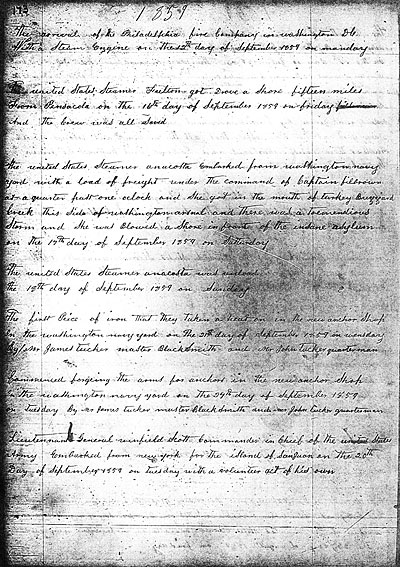 1859
The arrival of the Philadelphia fire Company in washington D.C.
With a Steam Engine on the 12th day of September 1859 on monday
The united States Steamer Fulton got Drove a Shore fifteen miles
From Pensacola on the 16th day of September 1859 on friday
And the Crew was all Saved
the united States Steamer anacosta Embarked from washington navy
yard with a load of freight under the command of Captain
at a quarter past one oclock and She got in the mouth of turkey Buzzard
Creek this Side of washington arsnal and there was a tremendious
Storm and She was blowed a Shore in front of the insane asylum
on the 17th day of September 1859 on Saturday
the united States Steamer anacosta was
the 18th day of September 1859 on Sunday
The first Peice of iron that they taken a heat on in the new anchor Shop
in the washington navy yard on the day of September 1859 on
By mr James tucker master Black Smith and mr John tucker quarterman
Commenced forgeing the arms for anchors in the new anchor Shop
in the washington navy yard on the day of September 1859
on tuesday by mr James tucker master Black Smith and mr John tucker quarterman
Lieutennant General winfield Scott Commander in Chief of the united States
Army Embarked from new york for the island of Sanjuan on the 20th
Day of September 1859 on tuesday with a volunteer act of his own